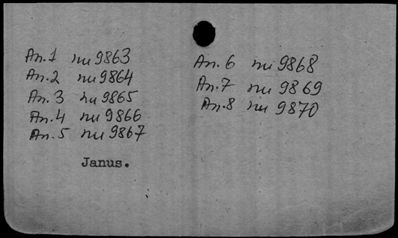 An.1 nu 9863
An.2 nu 9864
An.3 nu 9865
An.4 nu 9866
An.5 nu 9867
An.6 nu 9868
An.7 nu 9869
An.8 nu 9870
Janus.